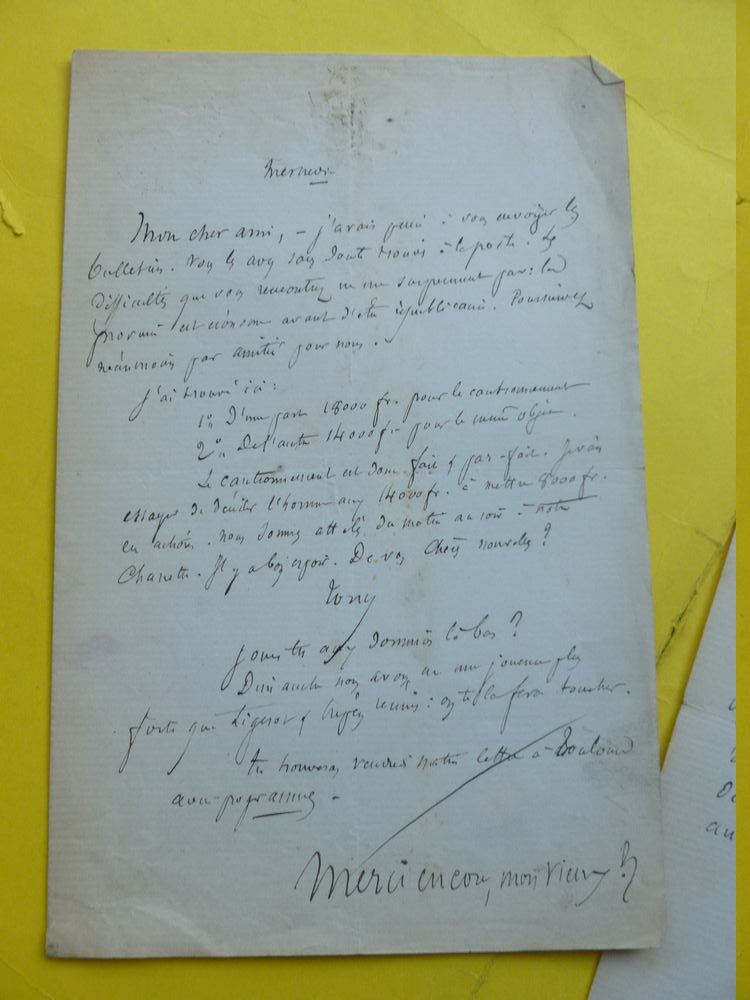 Mercredi
Mon cher ami, – j'avais pensé à vous envoyer les
bulletins. Vous les avez sans doute trouvés à la poste. Les
difficultés que vous rencontrez ne me surprennent pas: la
est avant d'être républicain. Poursuivez
néanmoins par amitié pour nous.
J'ai trouvé ici:
1º D'une part 18000 fr. pour le cautionnement
2º De l'autre 14000 fr. pour le même objet.
Le cautionnement est donc fait & par-fait. Je vais
essayer de décider l'homme aux 14000 fr. à mettre 8000 fr.
en actions. Nous sommes attelés du matin au soir à notre
Charrette. Il y a bon espoir. De vos chères nouvelles?
Tony
Joues-tu aux dominos là bas?
Dimanche nous avons eu une joueuse plus
forte que & réunis: on te la fera toucher.
Tu trouveras vendredi notre lettre à Toulouse
avec programme –
Merci encore, mon vieux